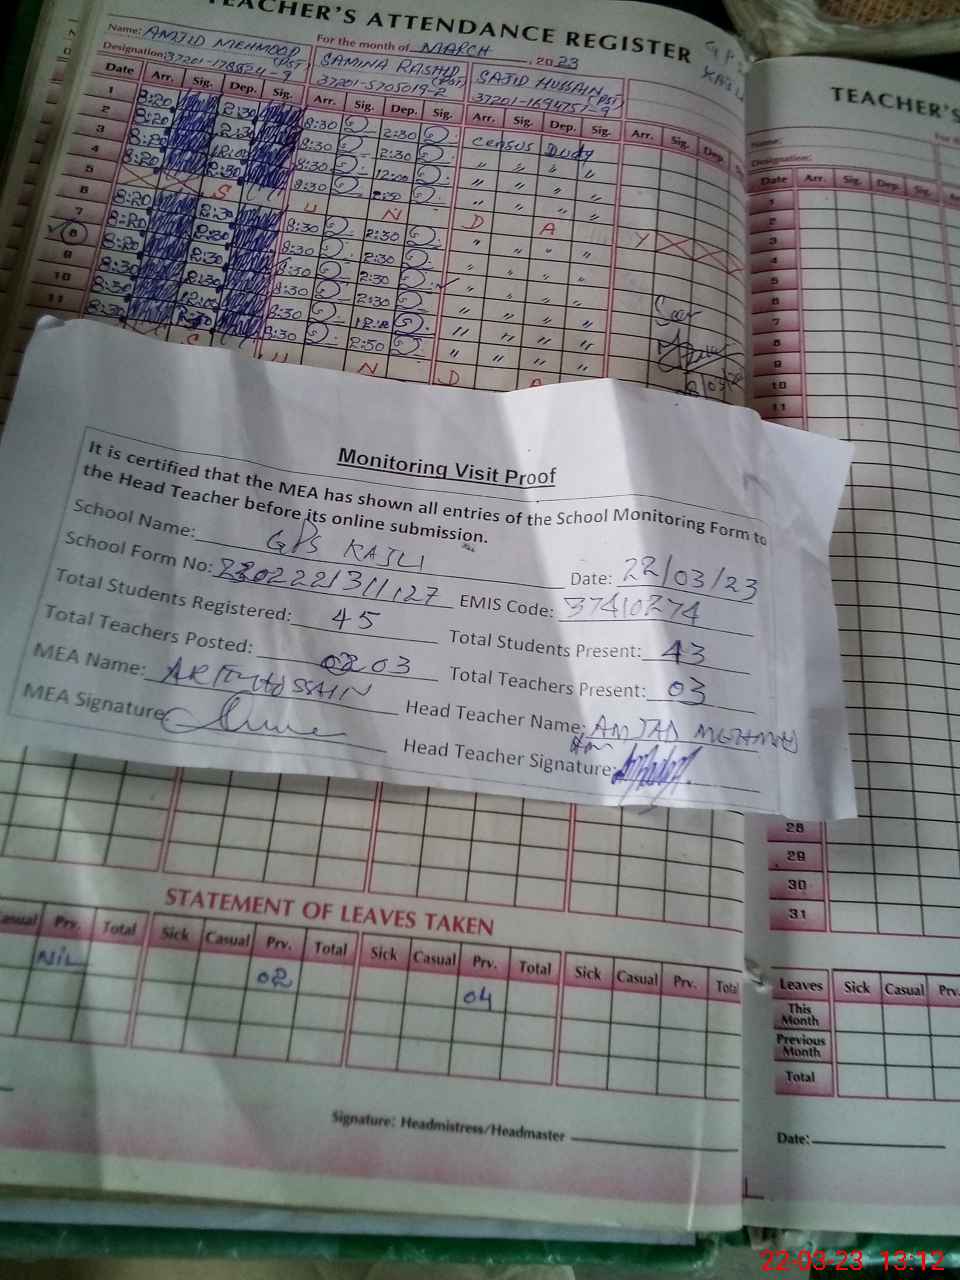 TEACHER'S ATTENDANCE REGISTER
Name: AMJID MEHMOOD
For the month of MARCH, 2023
Designation: (PST)
SAMINA RASHID (PST)
37201-5705019-2
SAJID HUSSAIN (PST)
Date Arr. Sig. Dep. Sig. Arr. Sig. Dep. Sig. Arr. Sig. Dep. Sig. Arr. Sig. Dep.
1 8:20 2:30 8:30 2:30 census Duty
2 8:20 2:30 8:30 2:30 " " " "
3 8:20 12:00 8:30 12:00 " " " "
4 8:20 2:30 8:30 2:30 " " " "
5 S U N D A Y
6 8:20 2:30 8:30 2:30 " " " "
7 8:20 2:30 8:30 2:30 " " " "
8 8:20 2:30 8:30 2:30 " " " "
9 8:30 2:30 8:30 2:30 " " " "
10 8:30 12:00 8:30 " " " "
11 8:30 8:30 2:30 " " " "
S U N D A
Seen
Monitoring Visit Proof
It is certified that the MEA has shown all entries of the School Monitoring Form to
the Head Teacher before its online submission.
School Name: GPS KAJLI
Date: 22/03/23
School Form No:
EMIS Code: 37410274
Total Students Registered: 45
Total Students Present: 43
Total Teachers Posted: 03
Total Teachers Present: 03
MEA Name: ARIF HUSSAIN
Head Teacher Name: AMJAD MEHMOOD
MEA Signature
Head Teacher Signature:
STATEMENT OF LEAVES TAKEN
Casual Prv. Total Sick Casual Prv. Total Sick Casual Prv. Total Sick Casual Prv. Total
NIL 02 04
Signature: Headmistress/Headmaster
TEACHER'S
Name:
Designation:
Date Arr. Sig. Dep. Sig.
1
2
3
4
5
6
7
8
9
10
11
28
29
30
31
Leaves Sick Casual Prv.
This Month
Previous Month
Total
Date:
22-03-23 13:12